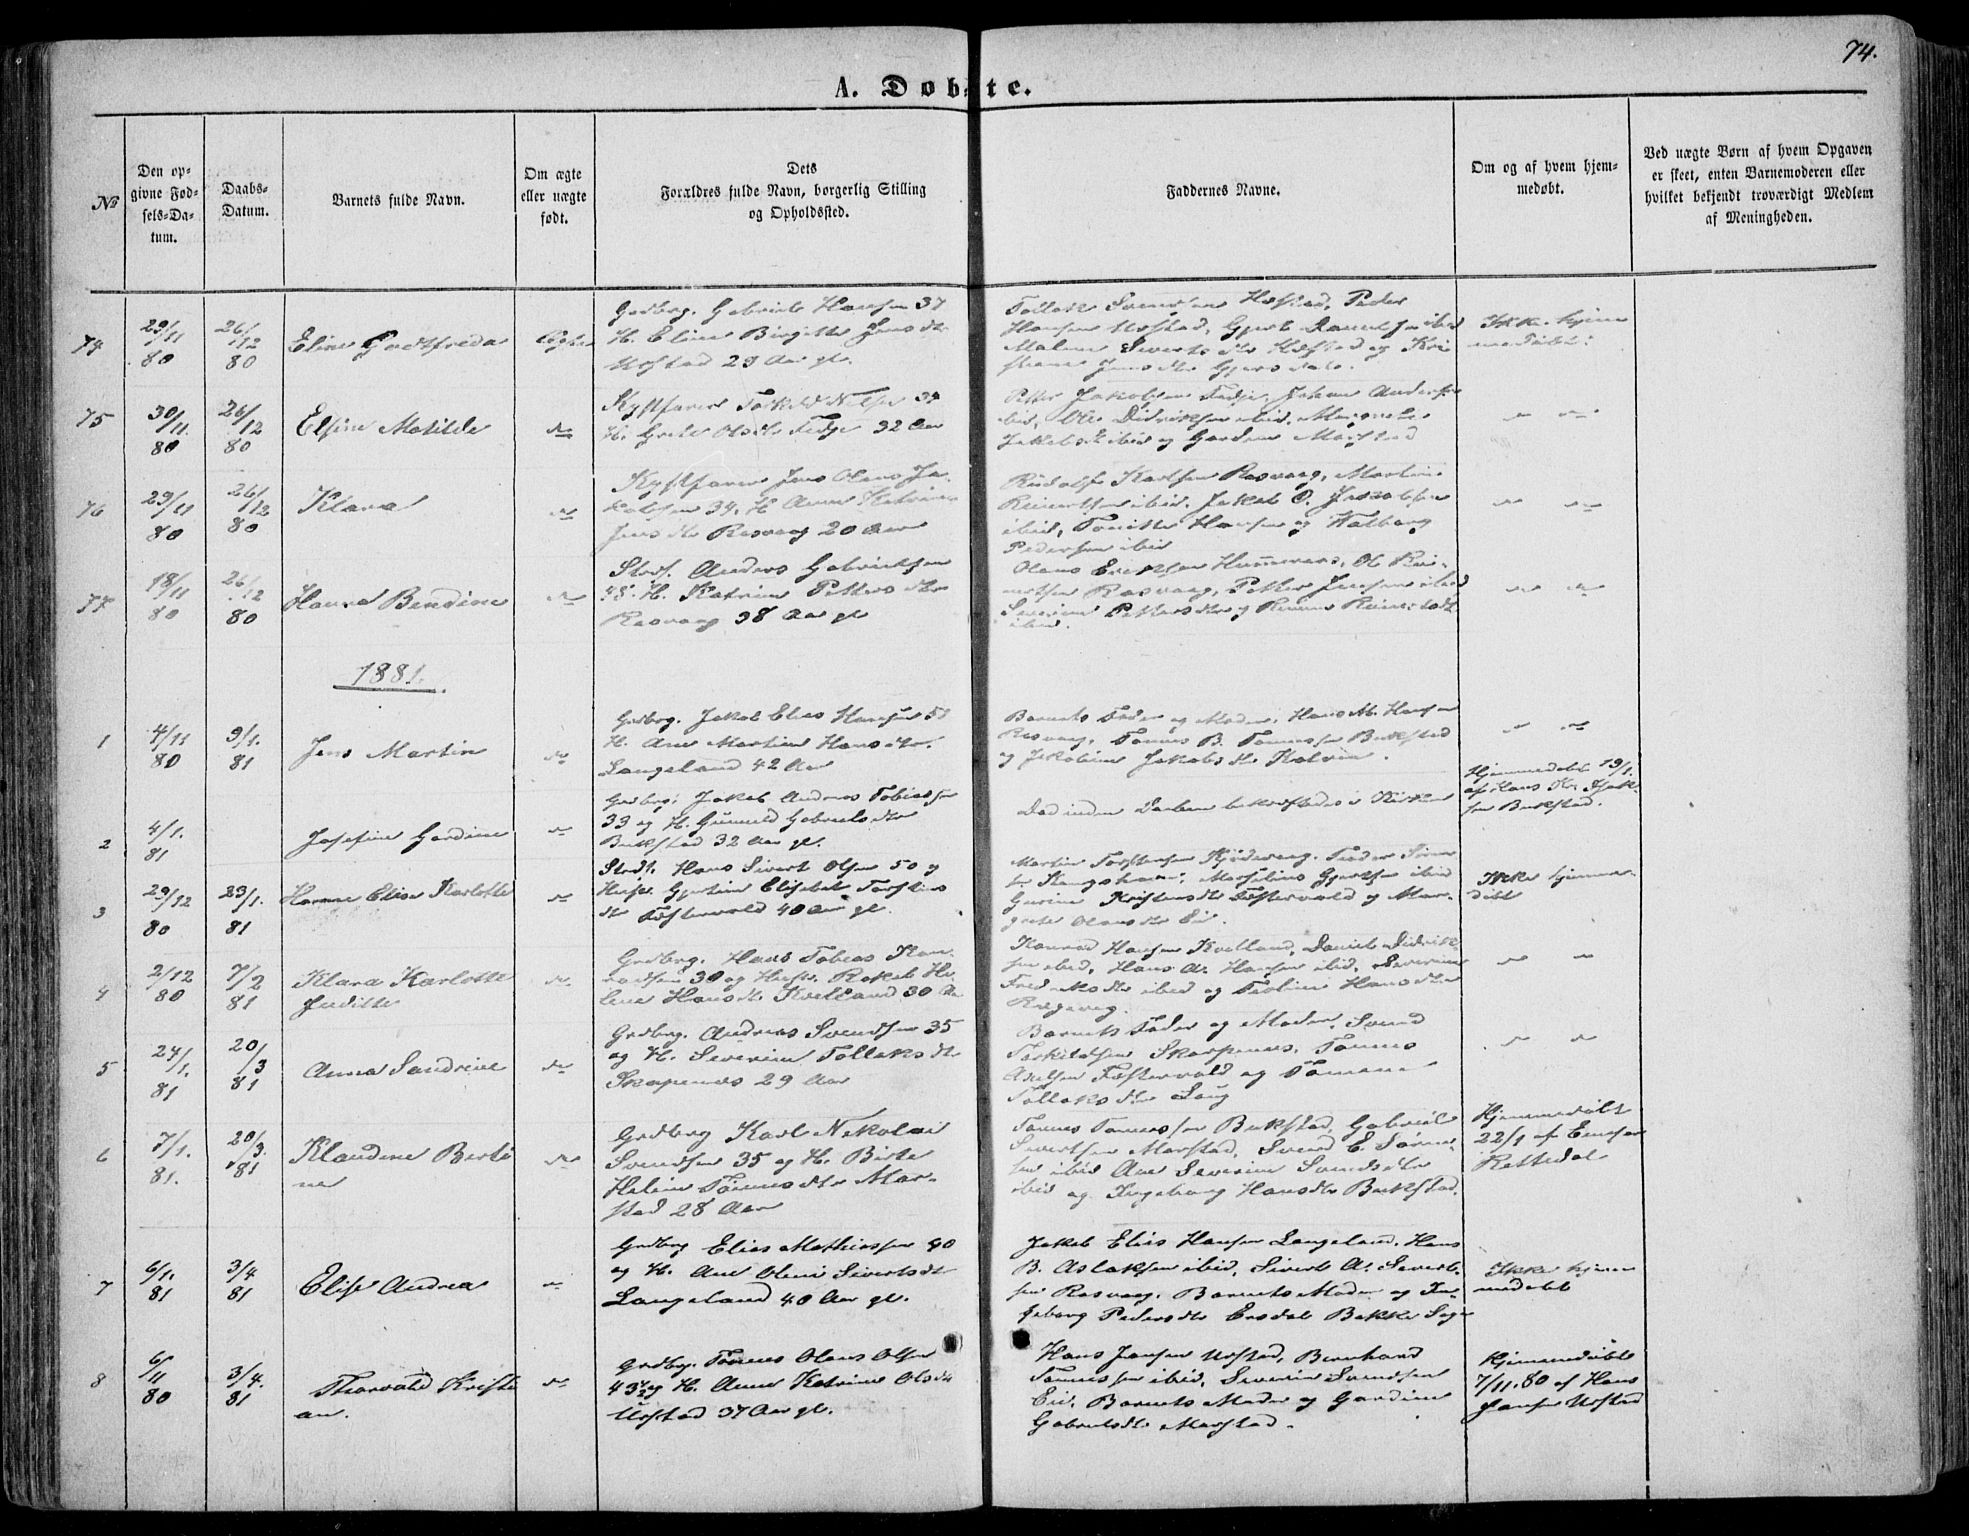 74.
A. Døbte.
No
Den opgivne Fødsels-Datum.
Daabs-Datum.
Barnets fulde Navn.
Om ægte eller uægte født.
Dets Forældres fulde Navn, borgerlig Stilling og Opholdssted.
Faddernes Navne.
Om og af hvem hjemmedøbt.
Ved uægte Børn af hvem Opgaven er skeet, enten Barnemoderen eller hvilket bekjendt troværdigt Medlem af Meningheden.
74
29/11 80
26/12 80
Eline Godtfreda
Ægte
Grdbrg. Gabriel Hansen 37
H. Eline Birgitte Jensdtr
Urstad 29 Aar gl.
Tollak Svendsen Hæstad, Peder
Hansen Urstad, Gjert Danielsen ibid
Malene Sivertsdtr Hæstad og
Jensdtr
Ikke hjem
medøbt
75
30/11 80
26/12 80
Elsine Matilde
do
Kystfarer Torkild Nilsen 34
H. Grete Olsdtr Fedje 32 Aar
Peter Jakobsen Fedje, Johan Andersen
ibid, Ole Didriksen ibid,
Jakobsdtr ibid og Gardine Marstad
76
29/11 80
26/12 80
Klara
do
Kystfarer Jens Olaus Ja-
kobsen 34, H. Anne Katrine
Jensdtr Rasvaag 20 Aar
Rudolf Karlsen Rasvaag, Martin
Reinertsen ibid, Jakob O. Jakobsen
ibid, Hansen og Valborg
Pedersen ibid
77
18/11 80
26/12 80
Hanna Bendine
do
Strds. Anders Gabrielsen
48. H. Katrine Pettersdtr
Rasvaag 38 Aar gl
Olaus Eriksen Hummeraas, Ol Rei-
nertsen Rasvaag, Petter Jensen ibid
Severine Pettersdtr og
ibid.
1881.
1
4/11 80
9/1. 81
Jens Martin
do
Grdbrg. Jakob Elias Hansen 51
H. Ane Martine Hansdtr.
Langeland 42 Aar
Barnets Fader og Moder, Hans M. Hansen
Rasvaag, Tønnes B. Tønnessen Bukstad
og Jakobine Jakobsdtr
2
4/1. 81
Josefine Gardine
do
Grdbrg. Jakob Andreas Tobiassen
33 og H. Gunnild Gabrielsdtr
Bukstad 32 Aar gl.
Død inden Daaben bekræftedes i Kirken
Hjemmedøbt 19/1.
af Hans Kr. Isak-
sen Bukstad.
3
29/12 80
23/1. 81
Hanne Elise Karlotte
do
Strds. Hans Sivert Olsen 50 og
Hust. Gjertine Elisabet Torstens
dtr Fostervold 40 Aar gl.
Martin Torstensen
Kongshavn, Marselius Gjertsen ibid
Gurine Kristensdtr Fostervold og Mar-
grete Olausdtr Eie.
Ikke hjemme-
døbt
4
2/12 80
7/2 81
Klara Karlotte
Juditte
do
Grdbrg. Hans Tobias Kon-
radsen 30 og Hustr. Rakel He-
lene Hansdtr Kvelland 30 Aar
Konrad Hansen Kvelland, Daniel Didrik-
sen ibid, Hans A. Hansen ibid, Severine
ibid og Teoline Hansdtr
5
24/1. 81
20/3 81
Anna Sandrine
do
Grdbrg. Andreas Svendsen 35
og H. Severine Tollaksdtr
Skarpenes 29 Aar
Barnets Fader og Moder, Svend
Torkildsen Skarpenes, Tønnes
Axelsen Fostervold og Tomine
Tollaksdtr Laug
6
7/1. 81.
20/3. 81
Klaudine Berti
ne
do
Grdbrg Karl Nikolai
Svendsen 35 og H. Birte
Heline Tønnesdtr Mar-
stad 28 Aar
Tønnes Tønnessen Bukstad, Gabriel
Sivertsen Marstad, Svend E. Søren-
sen ibid Ane Severine Svendsdtr
ibid og Ingeborg Hansdtr Bukstad.
Hjemmedøbt
22/1 af Einar
Kettedal
7
6/1. 81
3/4 81
Elise Andrea
do
Grdbrg Elias Mathiassen 40
og H. Ane Oleni Sivertsdtr
Langeland 40 Aar gl.
Jakob Elias Hansen Langeland, Hans
B. Aslaksen ibid, Sivert A. Sivert-
sen Rasvaag, Barnets Moder og In-
geborg Pedersdtr Ersdal Bakke Sogn
Ikke hjem
medøbt
8
6/11 80
3/4. 81
Thorvald Kristi
an.
do
Grdbrg. Tønnes Olaus Olsen
43 og H. Anne Katrine Olsdtr
Urstad 37 Aar gl.
Hans Jansen Urstad, Bernhard
Tønnessen ibid, Severin Svendsen
Eie, Barnets Moder og Gardine
Gabrielsdtr Marstad.
Hjemmedøbt
7/11.80 af Hans
Jansen Urstad